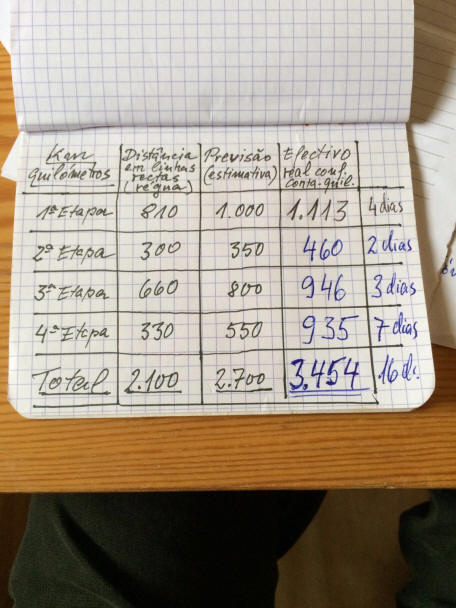 Km quilómetros | Distância em linhas rectas (régua) | Previsão (estimativa) | Efectivo real conf. conta-quil.
1ª Etapa 810 1.000 1.113 4 dias
2ª Etapa 300 350 460 2 dias
3ª Etapa 660 800 946 3 dias
4ª Etapa 330 550 935 7 dias
Total 2.100 2.700 3.454 16 d.